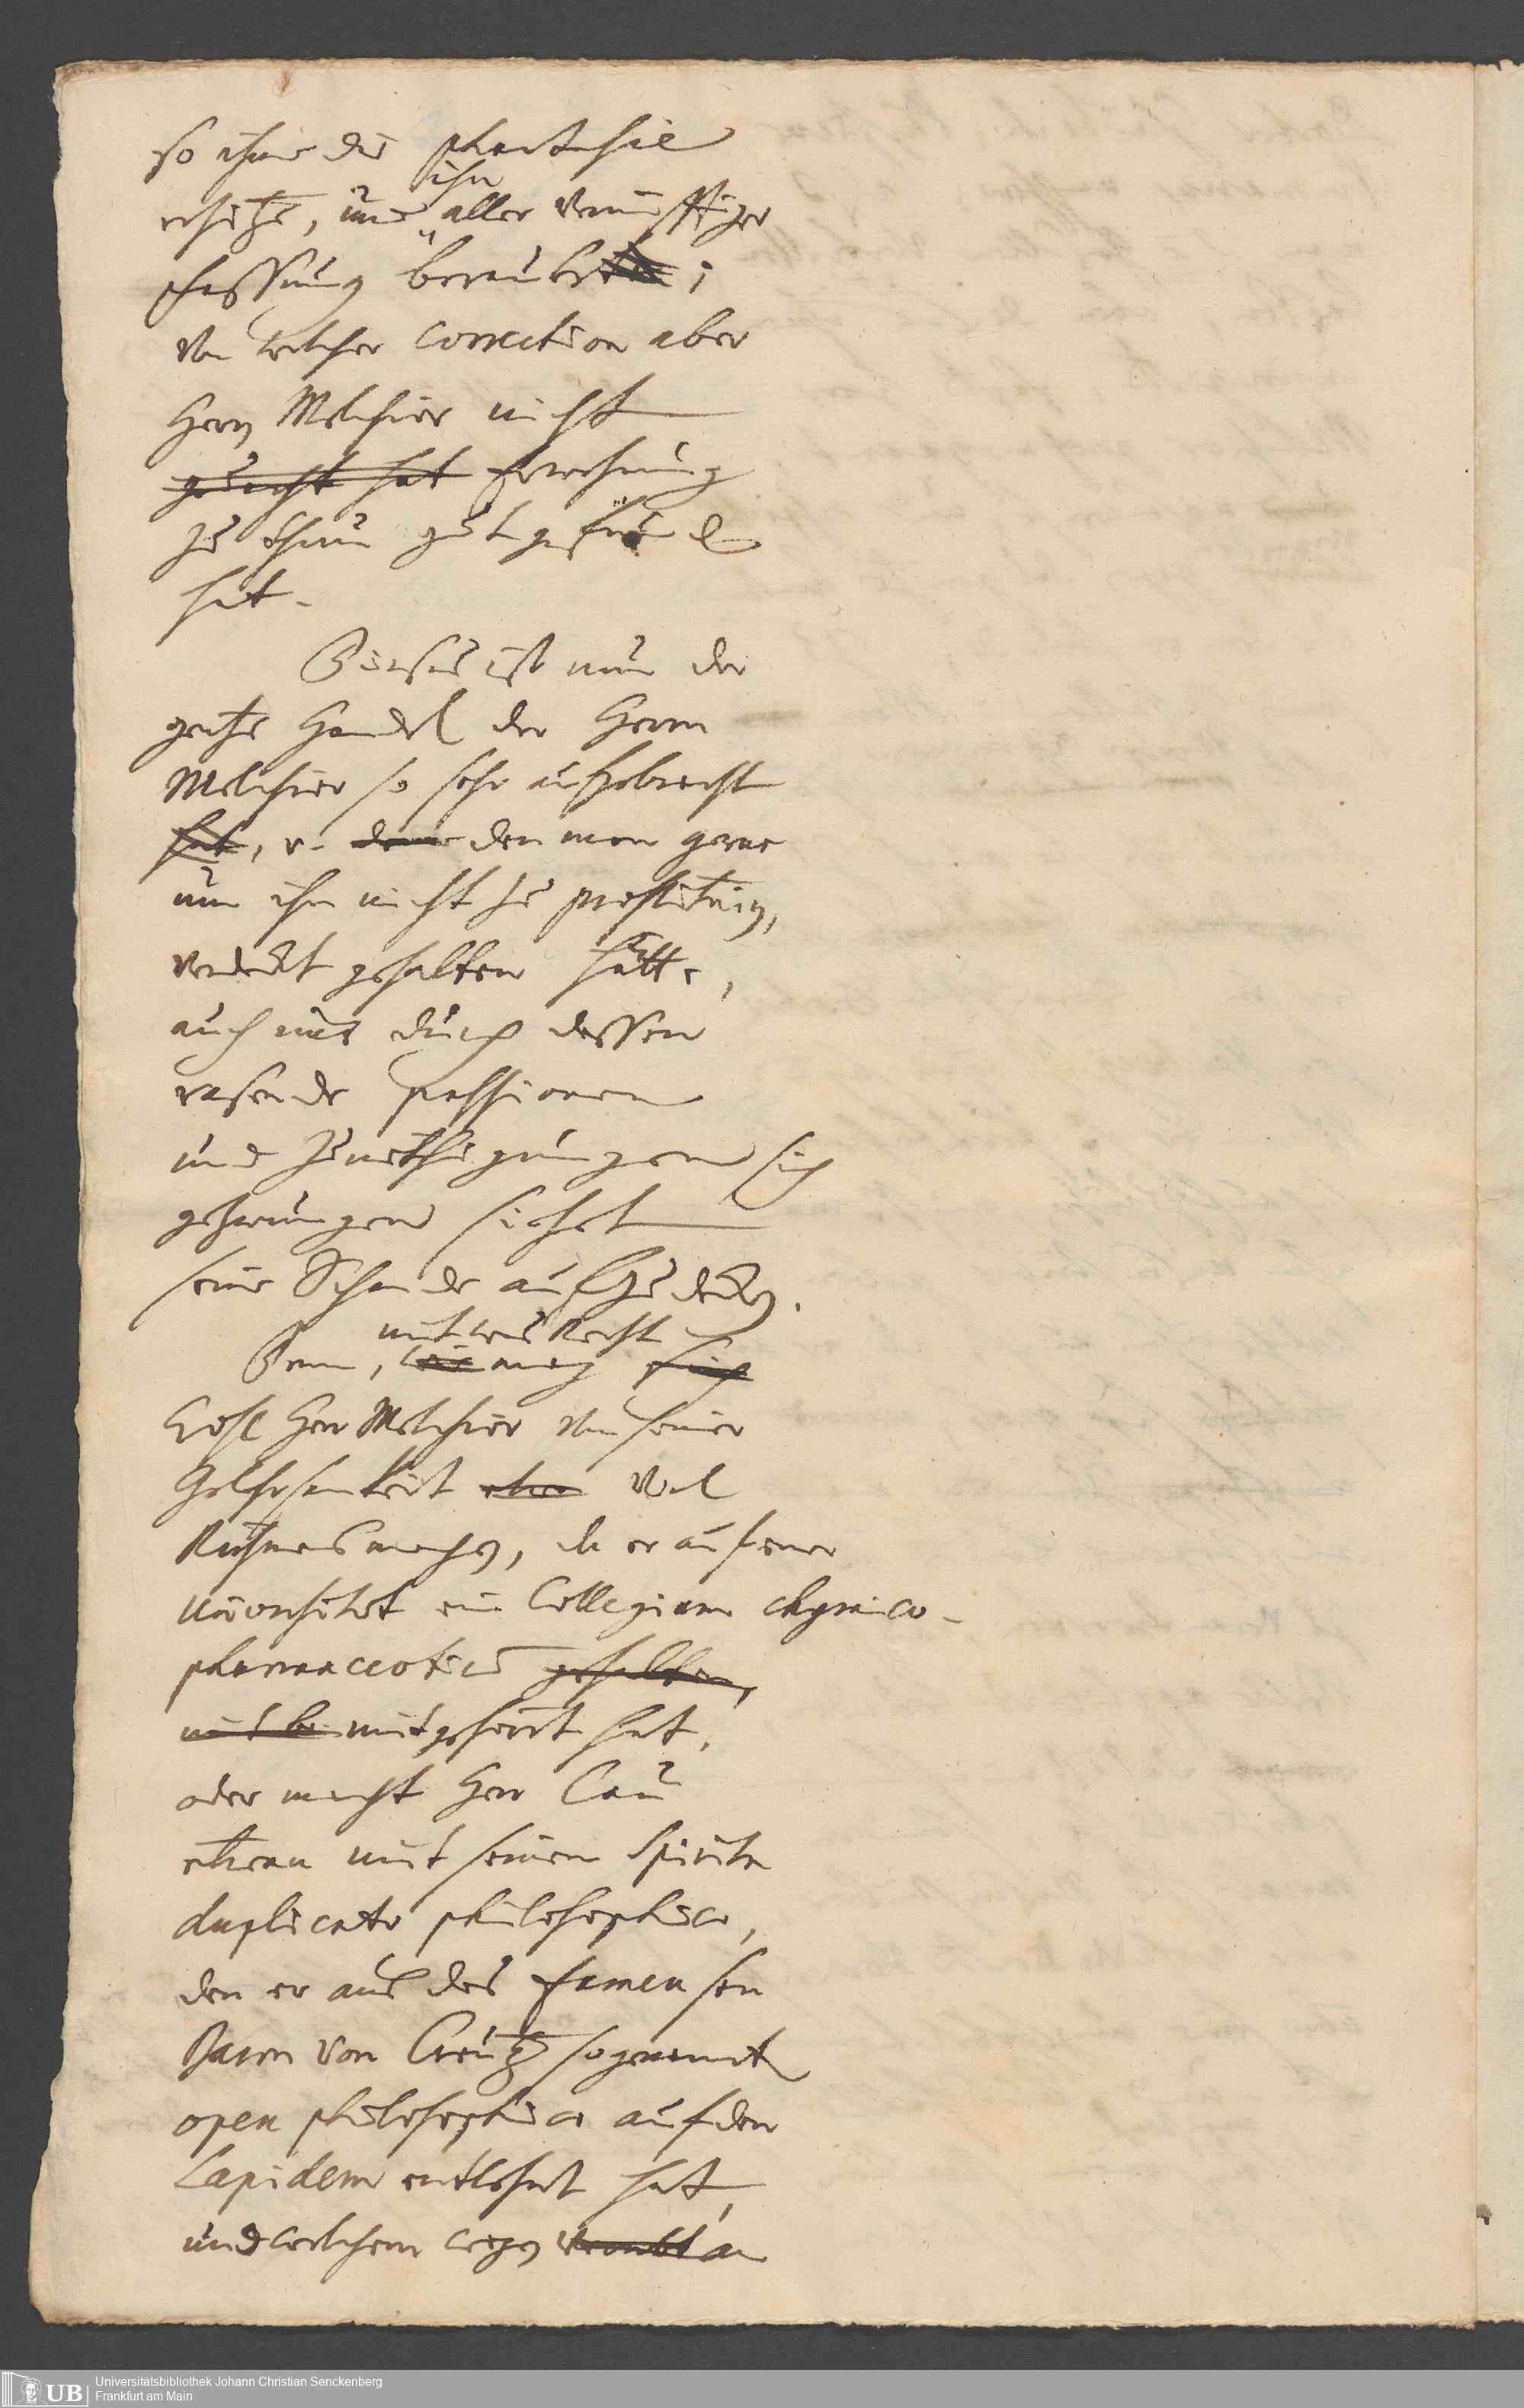 so ihme die phantasie
erhitzt, und ihn aller vernünfftiger
fassung beraubt;
von welcher correction aber
Herrn Melchior nicht
gedacht hat Erwehnung
zu thun gut gefund
hat.
Dieses ist nun der
gantze Handel der Herrn
Melchior so sehr aufgebracht
hat, v. den man gerne
um ihn nicht zu prostituirn,
verdeckt gehalten hätte,
auch nur durch dessen
rasende passionen
und Zunöthigungen sich
gezwungen siehet
seine Schande aufzudecken.
Denn, mit was Recht mag sich
Herr Melchior von seiner
Gelehrsamkeit etwa viel
Rühmens machen, da er auf einer
Universitet ein Collegium chymico-
pharmaceoticum gehalten,
mitgehört hat,
oder macht Herr Cau
etwan mit seinem Spiritu
duplicato philosophico,
den er aus des famensen
Baron von Creutz sogenannt
open philosophico auf den
Lapidem entlehnt hat,
und welchem wegen an